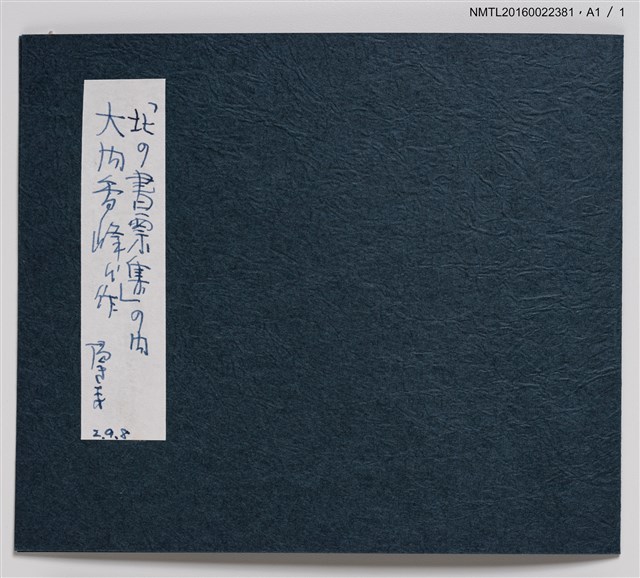 NMTL20160022381，A1 / 1
「北の書票集」の内
大内香峰作
2.9.8